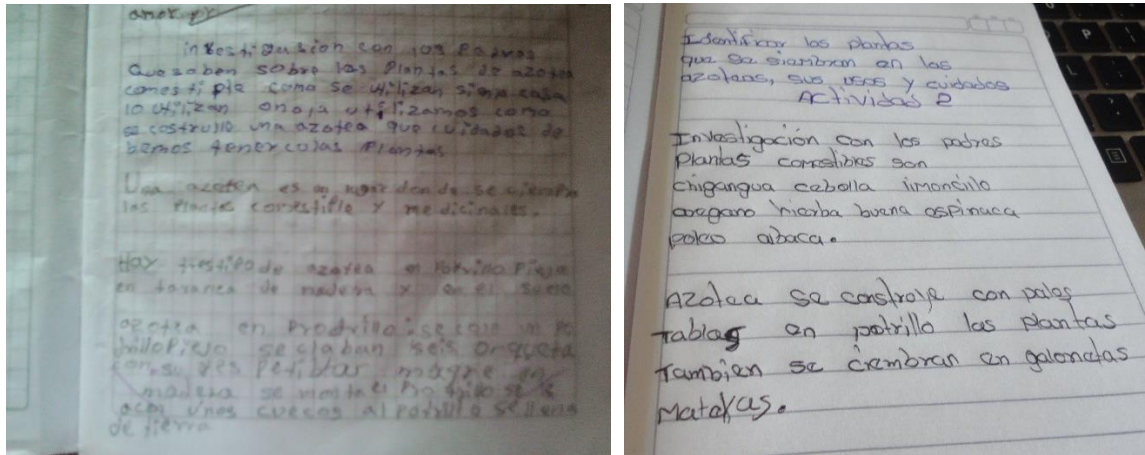 amor pr
investigasion con los Padres
que saben sobre las Plantas de azotea
comestiple como se utilizan si en casa
lo utilizan o no, a utilizamos como
se costrullo una azotea que cuidados de
bemos tener colas Plantas
Una azotea es un lugar donde se ciempra
las Plantas comestifle y medicinales.
Hay tres tipo de azotea en Potrillo Piejo
en taranca de madera y en el suelo
azotea en
se claban seis orqueta
madera se monta el Potrillo se le
acen unos guecos al potrillo se llena
de tierra
Identificar las plantas
que se siambran en las
azoteas, sus usos y cuidados
Actividad 2
Investigación con los padres
Plantas comestibles son
chigangua cebolla limoncillo
oregano hierba buena espinaca
poleo abaca.
Azotea se constroye con palos
tablas en potrillo las plantas
Tambien se ciembran en galonetas
Matexas.